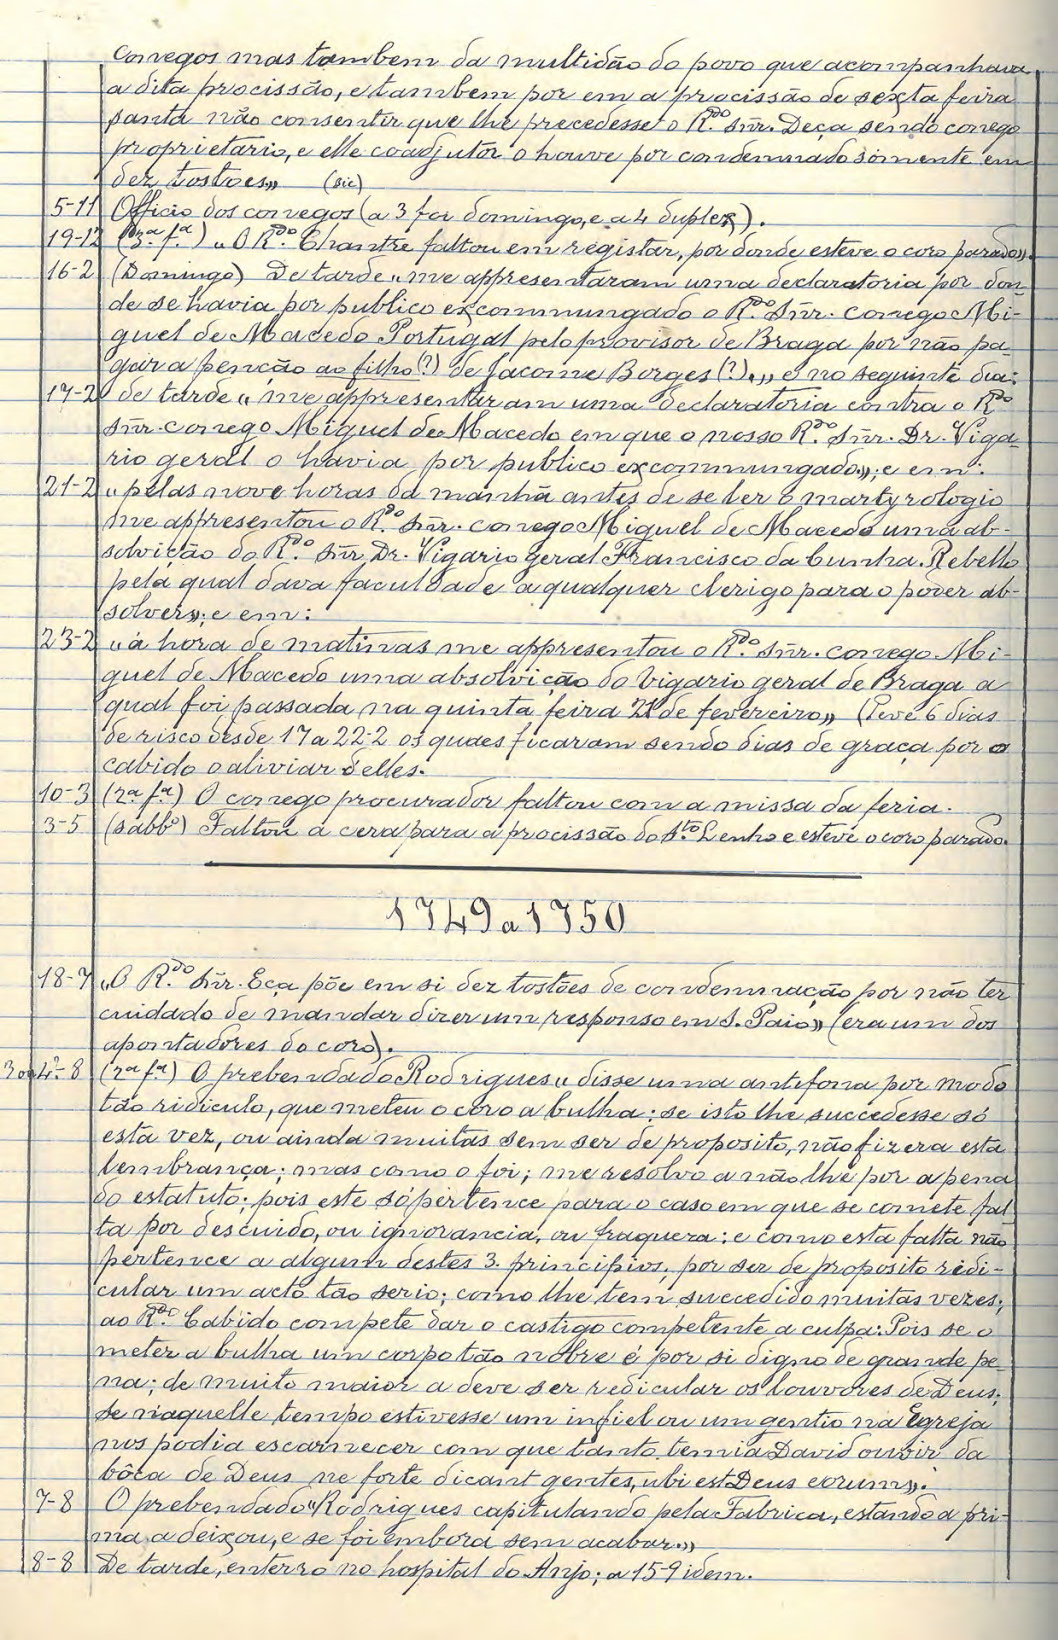 conegos mas tambem da multidão do povo que acompanhava
a dita procissão, e tambem por em a procissão de sexta feira
santa não consentir que lhe precedesse o R.do Snr. Deça sendo conego
proprietario, e elle coadjutor o houve por condemnado sómente em
dez tostoes» (sic)
5-11 Officio dos conegos (a 3 foi domingo, e a 4 duplex).
19-12 (3.a f.a) «O R.do Chantre faltou em registar, por donde esteve o coro parado».
16-2 (Domingo) De tarde «me appresentaram uma declaratoria por don-
de se havia por publico excommungado o R.do Snr. conego Mi-
guel de Macedo Portugal pelo provisor de Braga por não pa-
gar a penção ao filho (?) de Jacome Borges (?)...» e no seguinte dia:
17-2 de tarde «me appresentaram uma declaratoria contra o R.do
Snr. conego Miguel de Macedo em que o nosso R.do Snr. Dr. Viga-
rio geral o havia por publico excommungado»; e em:
21-2 «pelas nove horas da manhã antes de se ler o martyrologio
me appresentou o R.do Snr. conego Miguel de Macedo uma ab-
solvição do R.do Snr. Dr. Vigario geral Francisco da Cunha Rebello
pela qual dava faculdade a qualquer clerigo para o poder ab-
solver»; e em:
23-2 «á hora de matinas me appresentou o R.do Snr. conego Mi-
guel de Macedo uma absolvição do Vigario geral de Braga a
qual foi passada na quinta feira 21 de fevereiro» (Teve 6 dias
de risco desde 17 a 22-2 os quaes ficaram sendo dias de graça por o
cabido o aliviar d'elles.
10-3 (2.a f.a) O conego procurador faltou com a missa da feria.
3-5 (sabb.o) Faltou a cera para a procissão do S.to Lenho e esteve o coro parado.
1749 a 1750
18-7 «O R.do Snr. Eça põe em si dez tostões de condemnação por não ter
cuidado de mandar dizer um responso em S. Paio» (era um dos
apontadores do coro).
3 ou 4?-8 (2.a f.a) O prebendado Rodrigues «disse uma antifona por modo
tão ridiculo, que meteu o coro a bulha; se isto lhe succedesse só
esta vez, ou ainda muitas sem ser de proposito, não fizera esta
lembrança; mas como o foi; me resolvo a não lhe por a pena
do estatuto; pois este só pertence para o caso em que se comete fal-
ta por descuido, ou ignorancia, ou fraqueza; e como esta falta não
pertence a algum destes 3 principios, por ser de proposito redi-
cular um acto tão serio; como lhe tem succedido muitas vezes;
ao R.do Cabido compete dar o castigo competente a culpa: Pois se o
meter a bulha um corpo tão nobre é por si digno de grande pe-
na; de muito maior a deve ser redicular os louvores de Deus;
se naquelle tempo estivesse um infiel ou um gentio na Egreja
nos podia escarnecer com que tanto temia David ouvir da
bôca de Deus ne forte dicant gentes, ubi est Deus eorum».
7-8 O prebendado «Rodrigues capitulando pela Fabrica, estando a pri-
ma a deixou, e se foi embora sem acabar.»
8-8 De tarde, enterro no hospital do Anjo; a 15-9 idem.